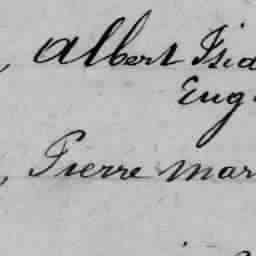 , Albert Isid
Eug
, Pierre Mar